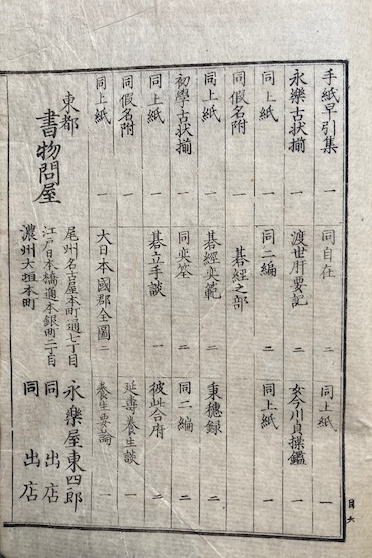 手紙早引集 一
永樂古状揃 一
同上紙 一
同假名附 一
同上紙 一
初學古状揃 一
同上紙 一
同假名附 一
同上紙 一
同自在 二
渡世肝要記 二
同二編 二
碁經之部
碁經奕範 二
同奕筌 二
碁立手談 一
大日本國郡全圖 二
同上紙 一
女今川貞操鑑 一
同上紙 一
秉穗録 二
同二編 二
彼此合府 二
延壽養生談 一
養生要論 一
東都
書物問屋
尾州名古屋本町通七丁目 永樂屋東四郎
江戸日本橋通本銀町二丁目 同出店
濃州大垣本町 同出店
目六